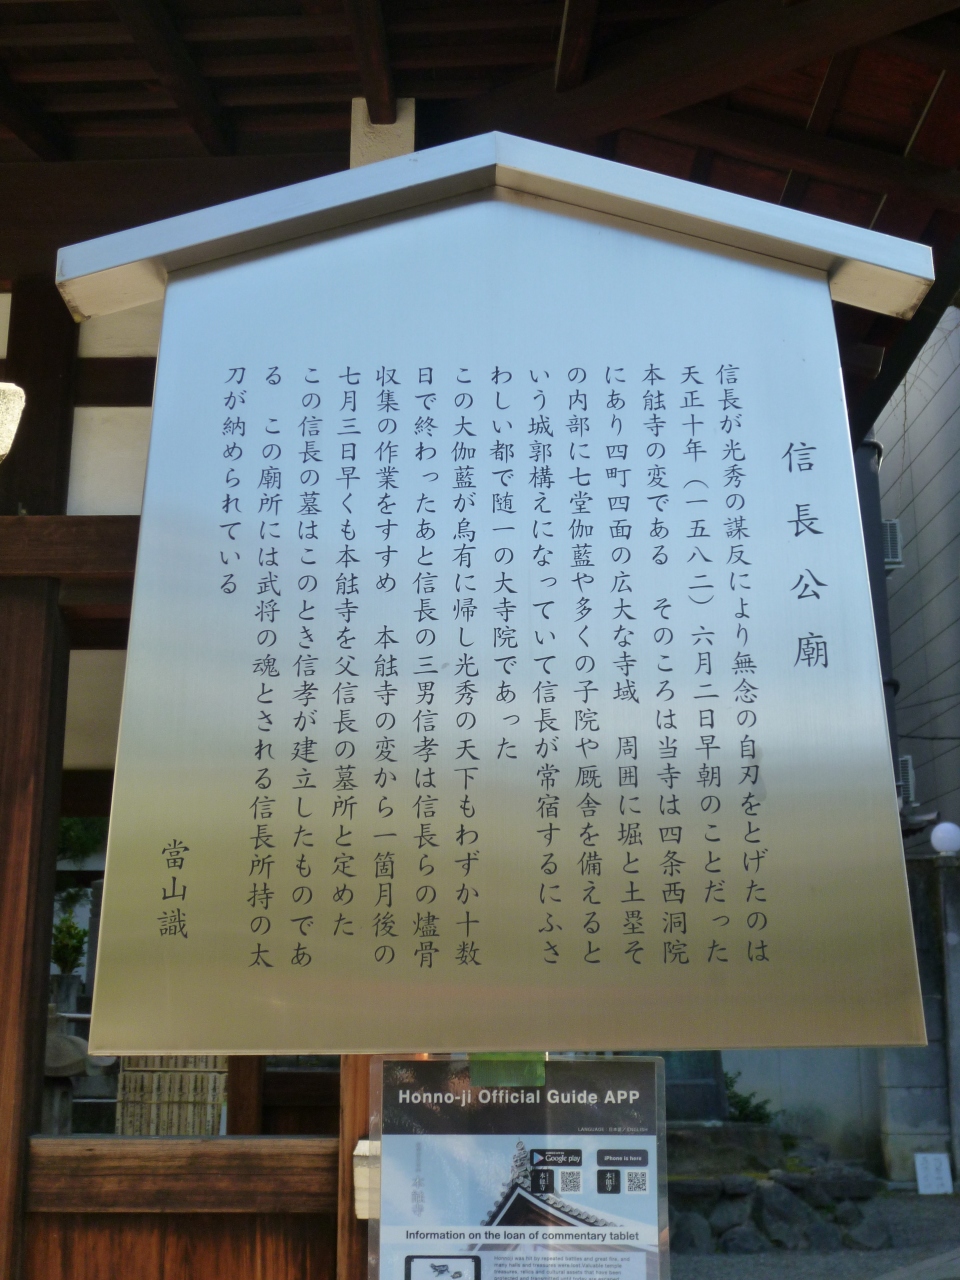 信長公廟
信長が光秀の謀反により無念の自刃をとげたのは
天正十年（一五八二）六月二日早朝のことだった
本能寺の変である　そのころは当寺は四条西洞院
にあり四町四面の広大な寺域　周囲に堀と土塁そ
の内部に七堂伽藍や多くの子院や厩舎を備えると
いう城郭構えになっていて信長が常宿するにふさ
わしい都で随一の大寺院であった
この大伽藍が烏有に帰し光秀の天下もわずか十数
日で終わったあと信長の三男信孝は信長らの燼骨
収集の作業をすすめ　本能寺の変から一箇月後の
七月三日早くも本能寺を父信長の墓所と定めた
この信長の墓はこのとき信孝が建立したものであ
る　この廟所には武将の魂とされる信長所持の太
刀が納められている
當山識
Honno-ji Official Guide APP
LANGUAGE : 日本語／ENGLISH
Google play
iPhone is here
本能寺
本能寺
Information on the loan of commentary tablet